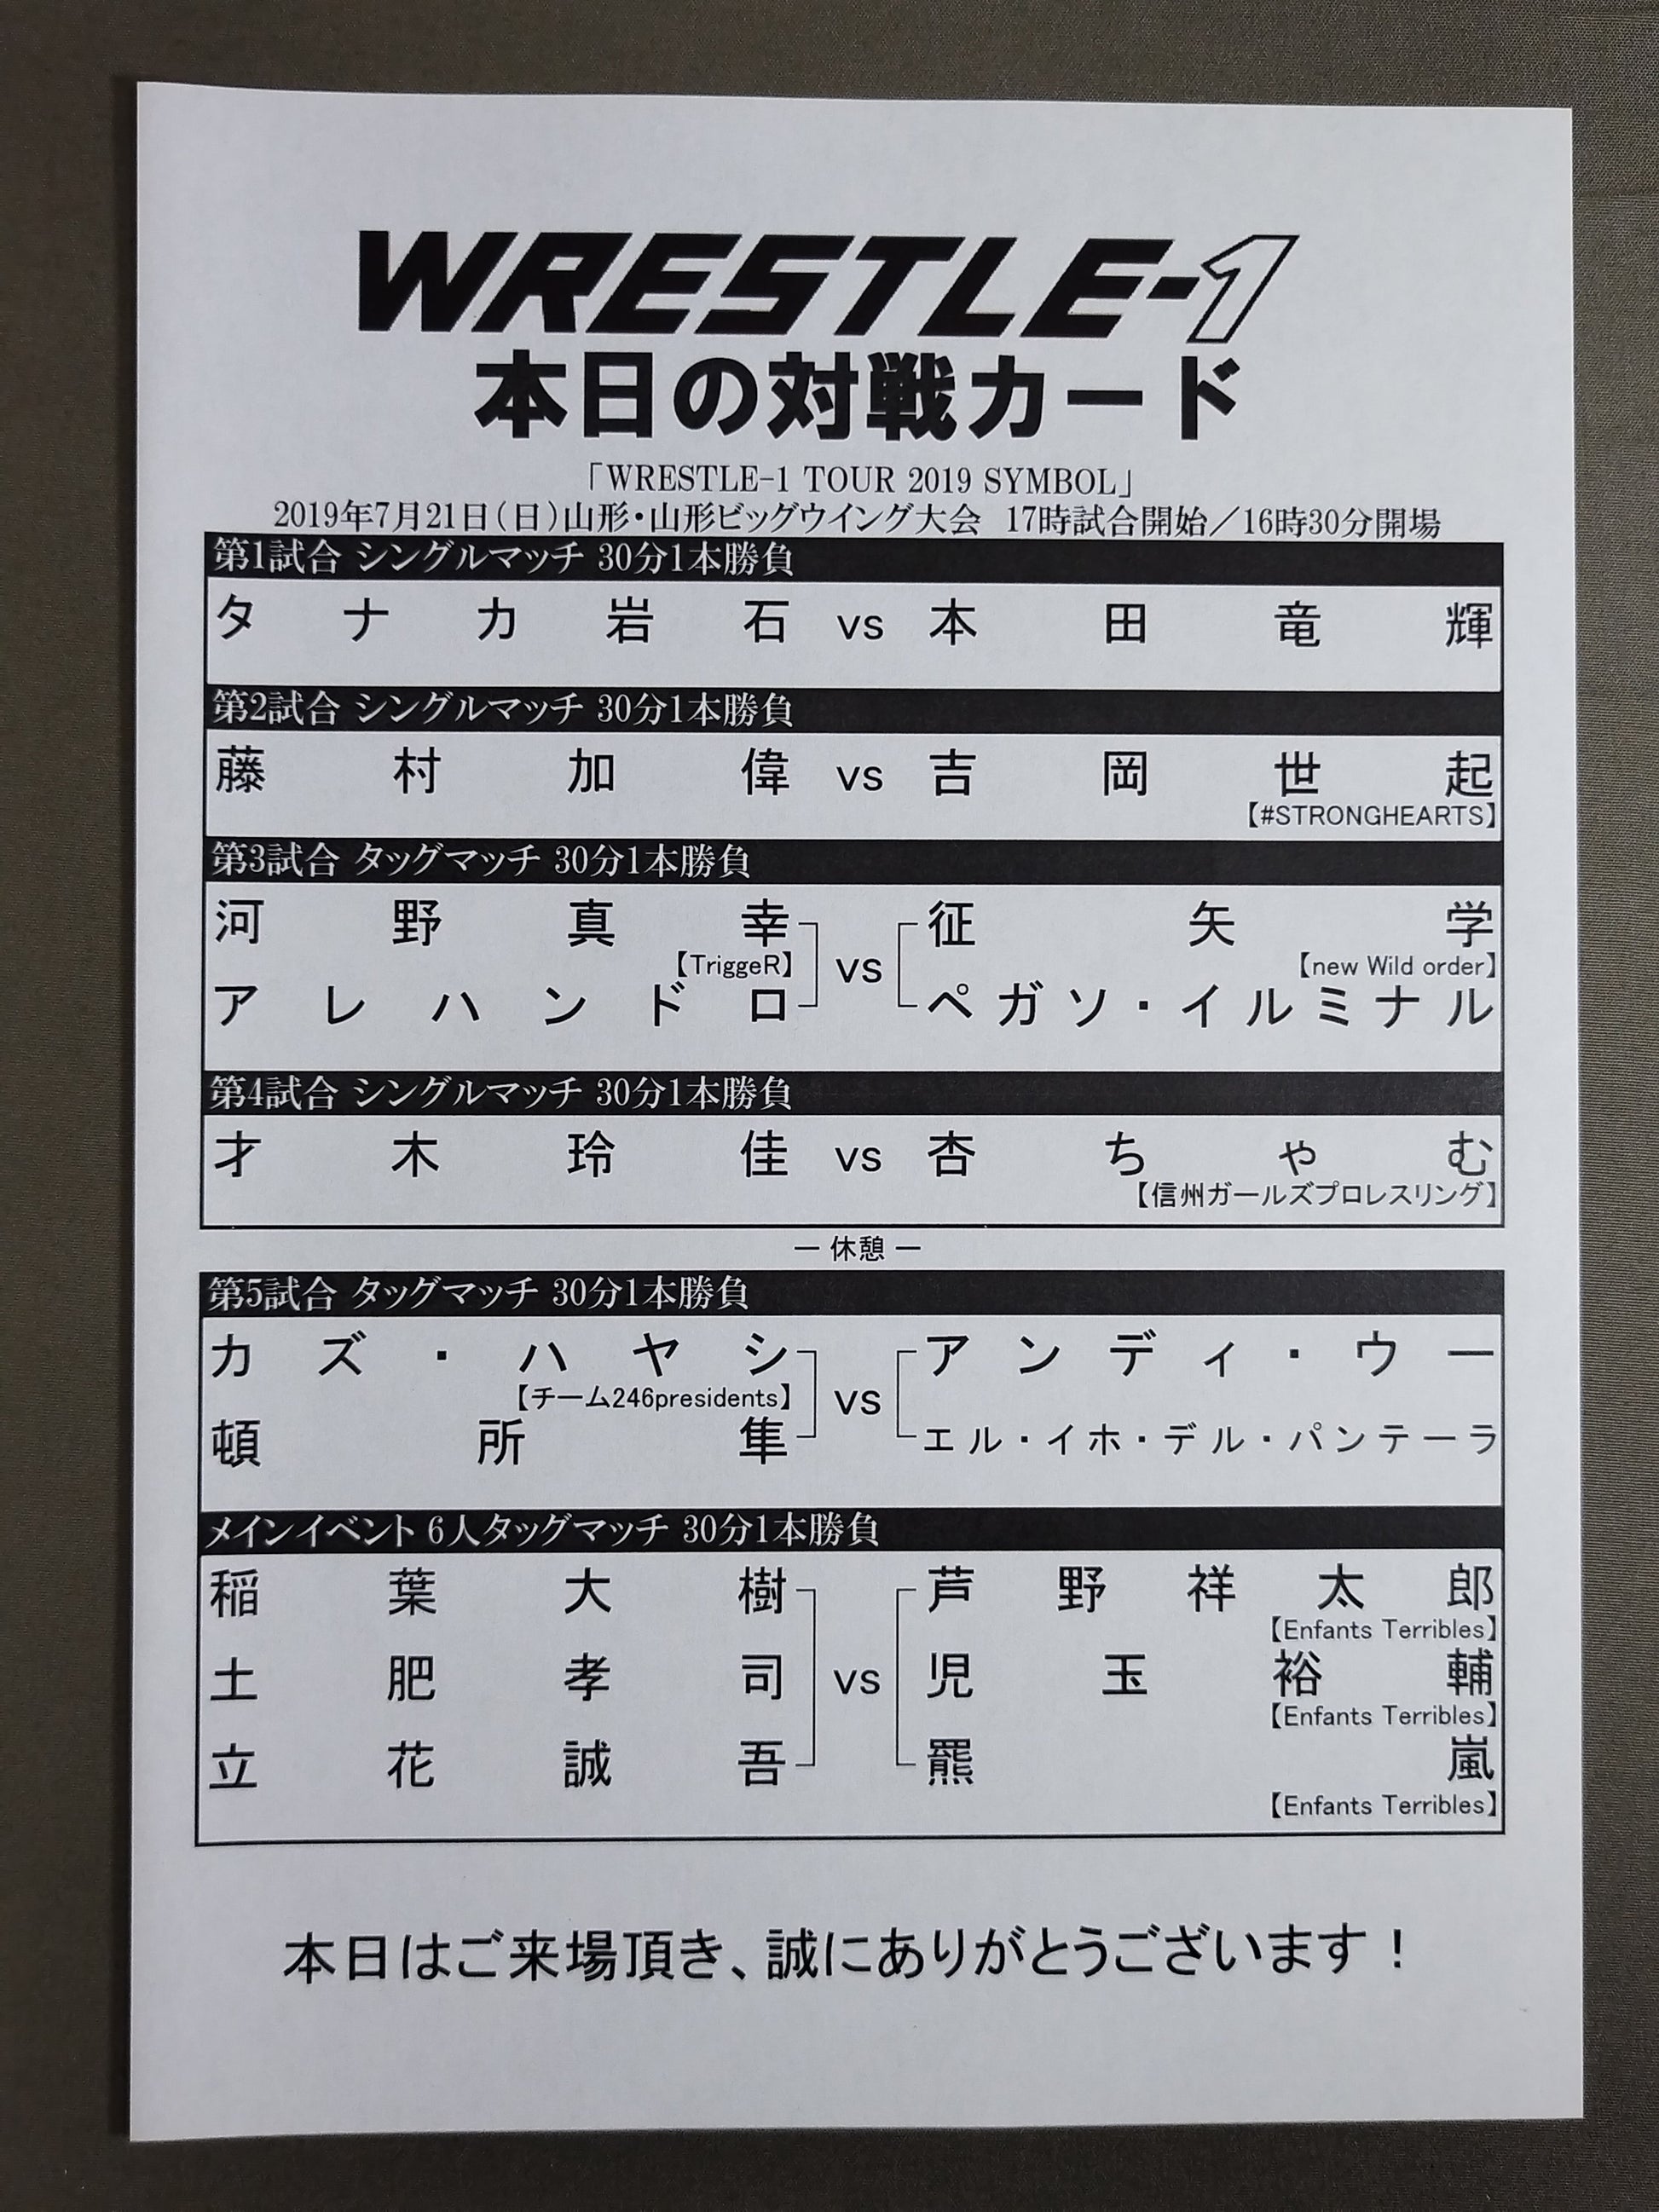 WRESTLE-1
本日の対戦カード
「WRESTLE-1 TOUR 2019 SYMBOL」
2019年7月21日(日)山形・山形ビッグウイング大会 17時試合開始／16時30分開場
第1試合 シングルマッチ 30分1本勝負
タナカ岩石 vs 本田竜輝
第2試合 シングルマッチ 30分1本勝負
藤村加偉 vs 吉岡世起
【#STRONGHEARTS】
第3試合 タッグマッチ 30分1本勝負
河野真幸 征矢学
【TriggeR】 vs 【new Wild order】
アレハンドロ ペガソ・イルミナル
第4試合 シングルマッチ 30分1本勝負
才木玲佳 vs 杏ちゃむ
【信州ガールズプロレスリング】
― 休憩 ―
第5試合 タッグマッチ 30分1本勝負
カズ・ハヤシ アンディ・ウー
【チーム246presidents】 vs
頓所隼 エル・イホ・デル・パンテーラ
メインイベント 6人タッグマッチ 30分1本勝負
稲葉大樹 芦野祥太郎
【Enfants Terribles】
土肥孝司 vs 児玉裕輔
【Enfants Terribles】
立花誠吾 羆嵐
【Enfants Terribles】
本日はご来場頂き、誠にありがとうございます！